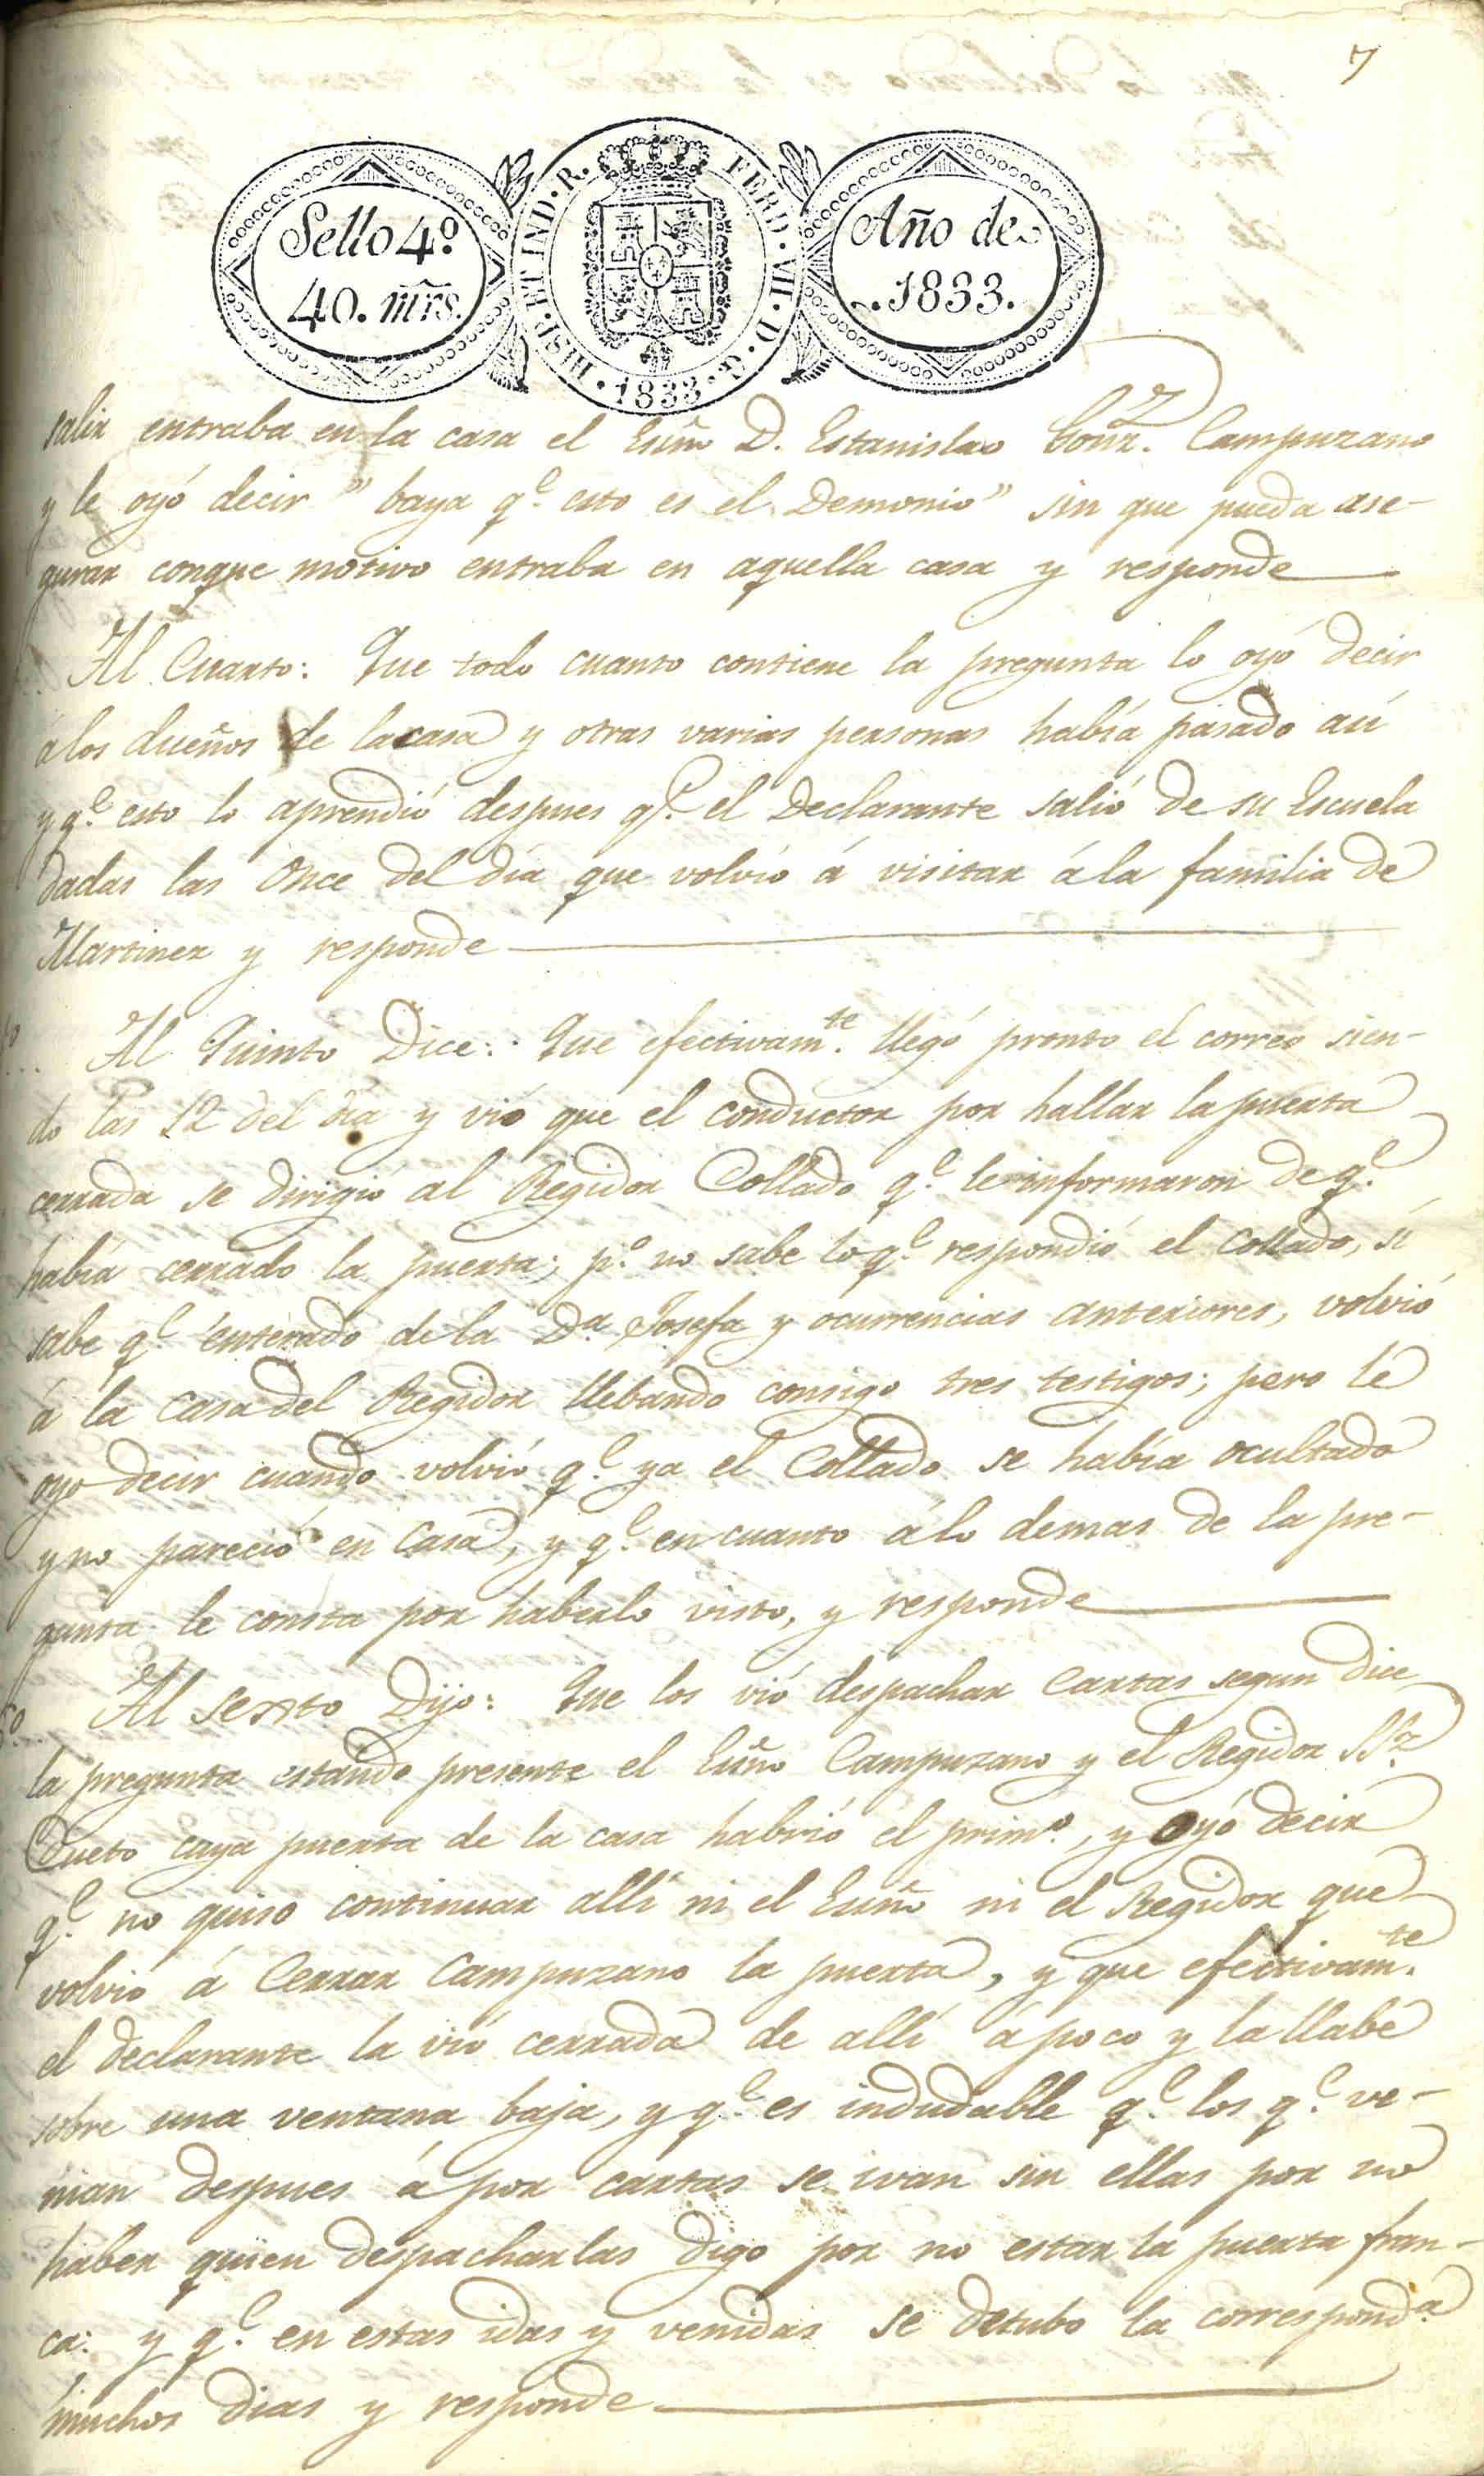 7
Sello 4º
40. mrs.
HISP. ET IND. R. FERD. VII. D. G. 1833.
Año de
1833.
salir entraba en la casa el Essño D. Estanislao Gonz.z Campuzano
y le oyó decir " baya q.e esto es el Demonio" sin que pueda ase-
gurar conque motivo entraba en aquella casa y responde
Al Cuarto: Que todo cuanto contiene la pregunta lo oyó decir
á los dueños de la casa y otras varias personas había pasado así
y q.e esto lo aprendió despues q.e el Declarante salió de su Escuela
dadas las Once del día que volvío á visitar á la familia de
Martinez y responde
Al Quinto Dice: Que efectivam.te llegó pronto el correo sien-
do las 12 del dia y vió que el conductor por hallar la puerta
cerrada se dirigió al Regidor Collado q.e le informaron de q.e
había cerrado la puerta; p.o no sabe lo q.e respondió el Collado, si
sabe q.e enterado de la D.a Josefa y ocurrencias anteriores, volvió
á la casa del Regidor llebando consigo tres testigos; pero le
oyo decir cuando volvió q.e ya el Collado se había ocultado
y no pareció en casa, y q.e en cuanto á lo demas de la pre-
gunta le consta por haberlo visto, y responde
6º Al Sexto Dijo: Que los vió despachar Cartas segun dice
la pregunta estando presente el Essño Campuzano y el Regidor
Cueto cuya puerta de la casa habrió el prim.o, y oyó decir
q.e no quiso continuar allí ni el Essño ni el Regidor que
volvió á Cerrar Campuzano la puerta, y que efectivam.te
el declarante la vió cerrada de allí á poco y la llabe
sobre una ventana baja, y q.e es indudable q.e los q.e ve-
nian despues á por cartas se ivan sin ellas por no
haber quien despacharlas digo por no estar la puerta fran-
ca: y q.e en estas idas y venidas se detubo la correspond.a
muchos dias y responde